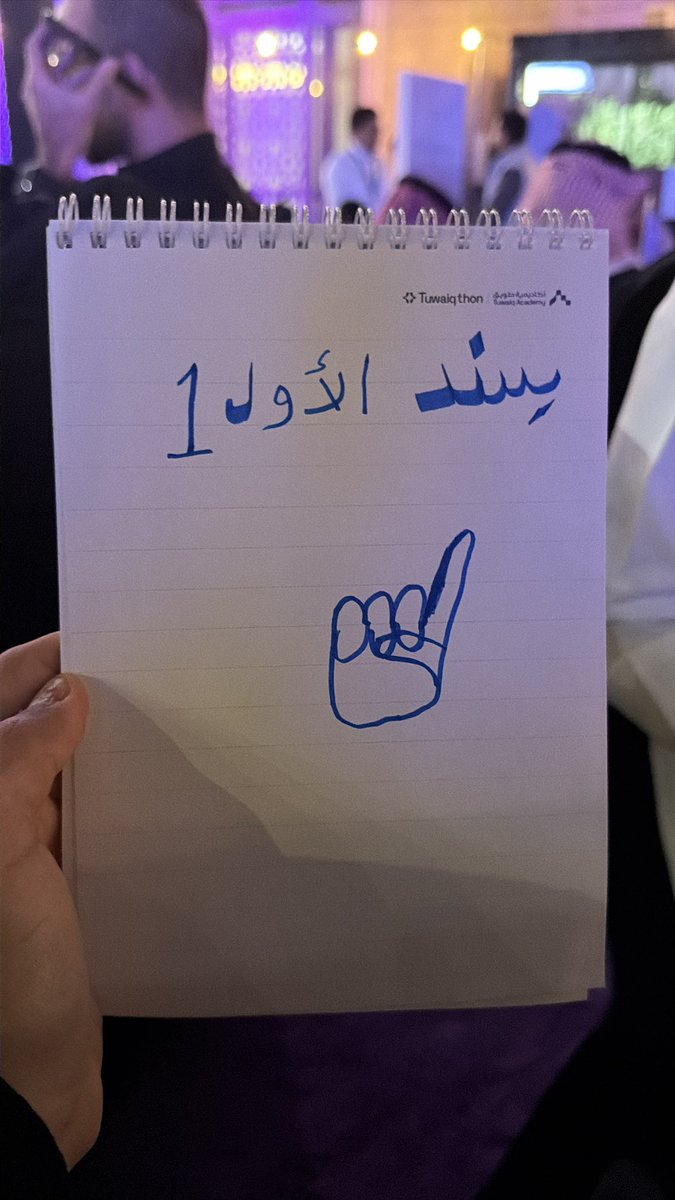 Tuwaiqthon أكاديمية طويق
Tuwaiq Academy
يسند الأول 1